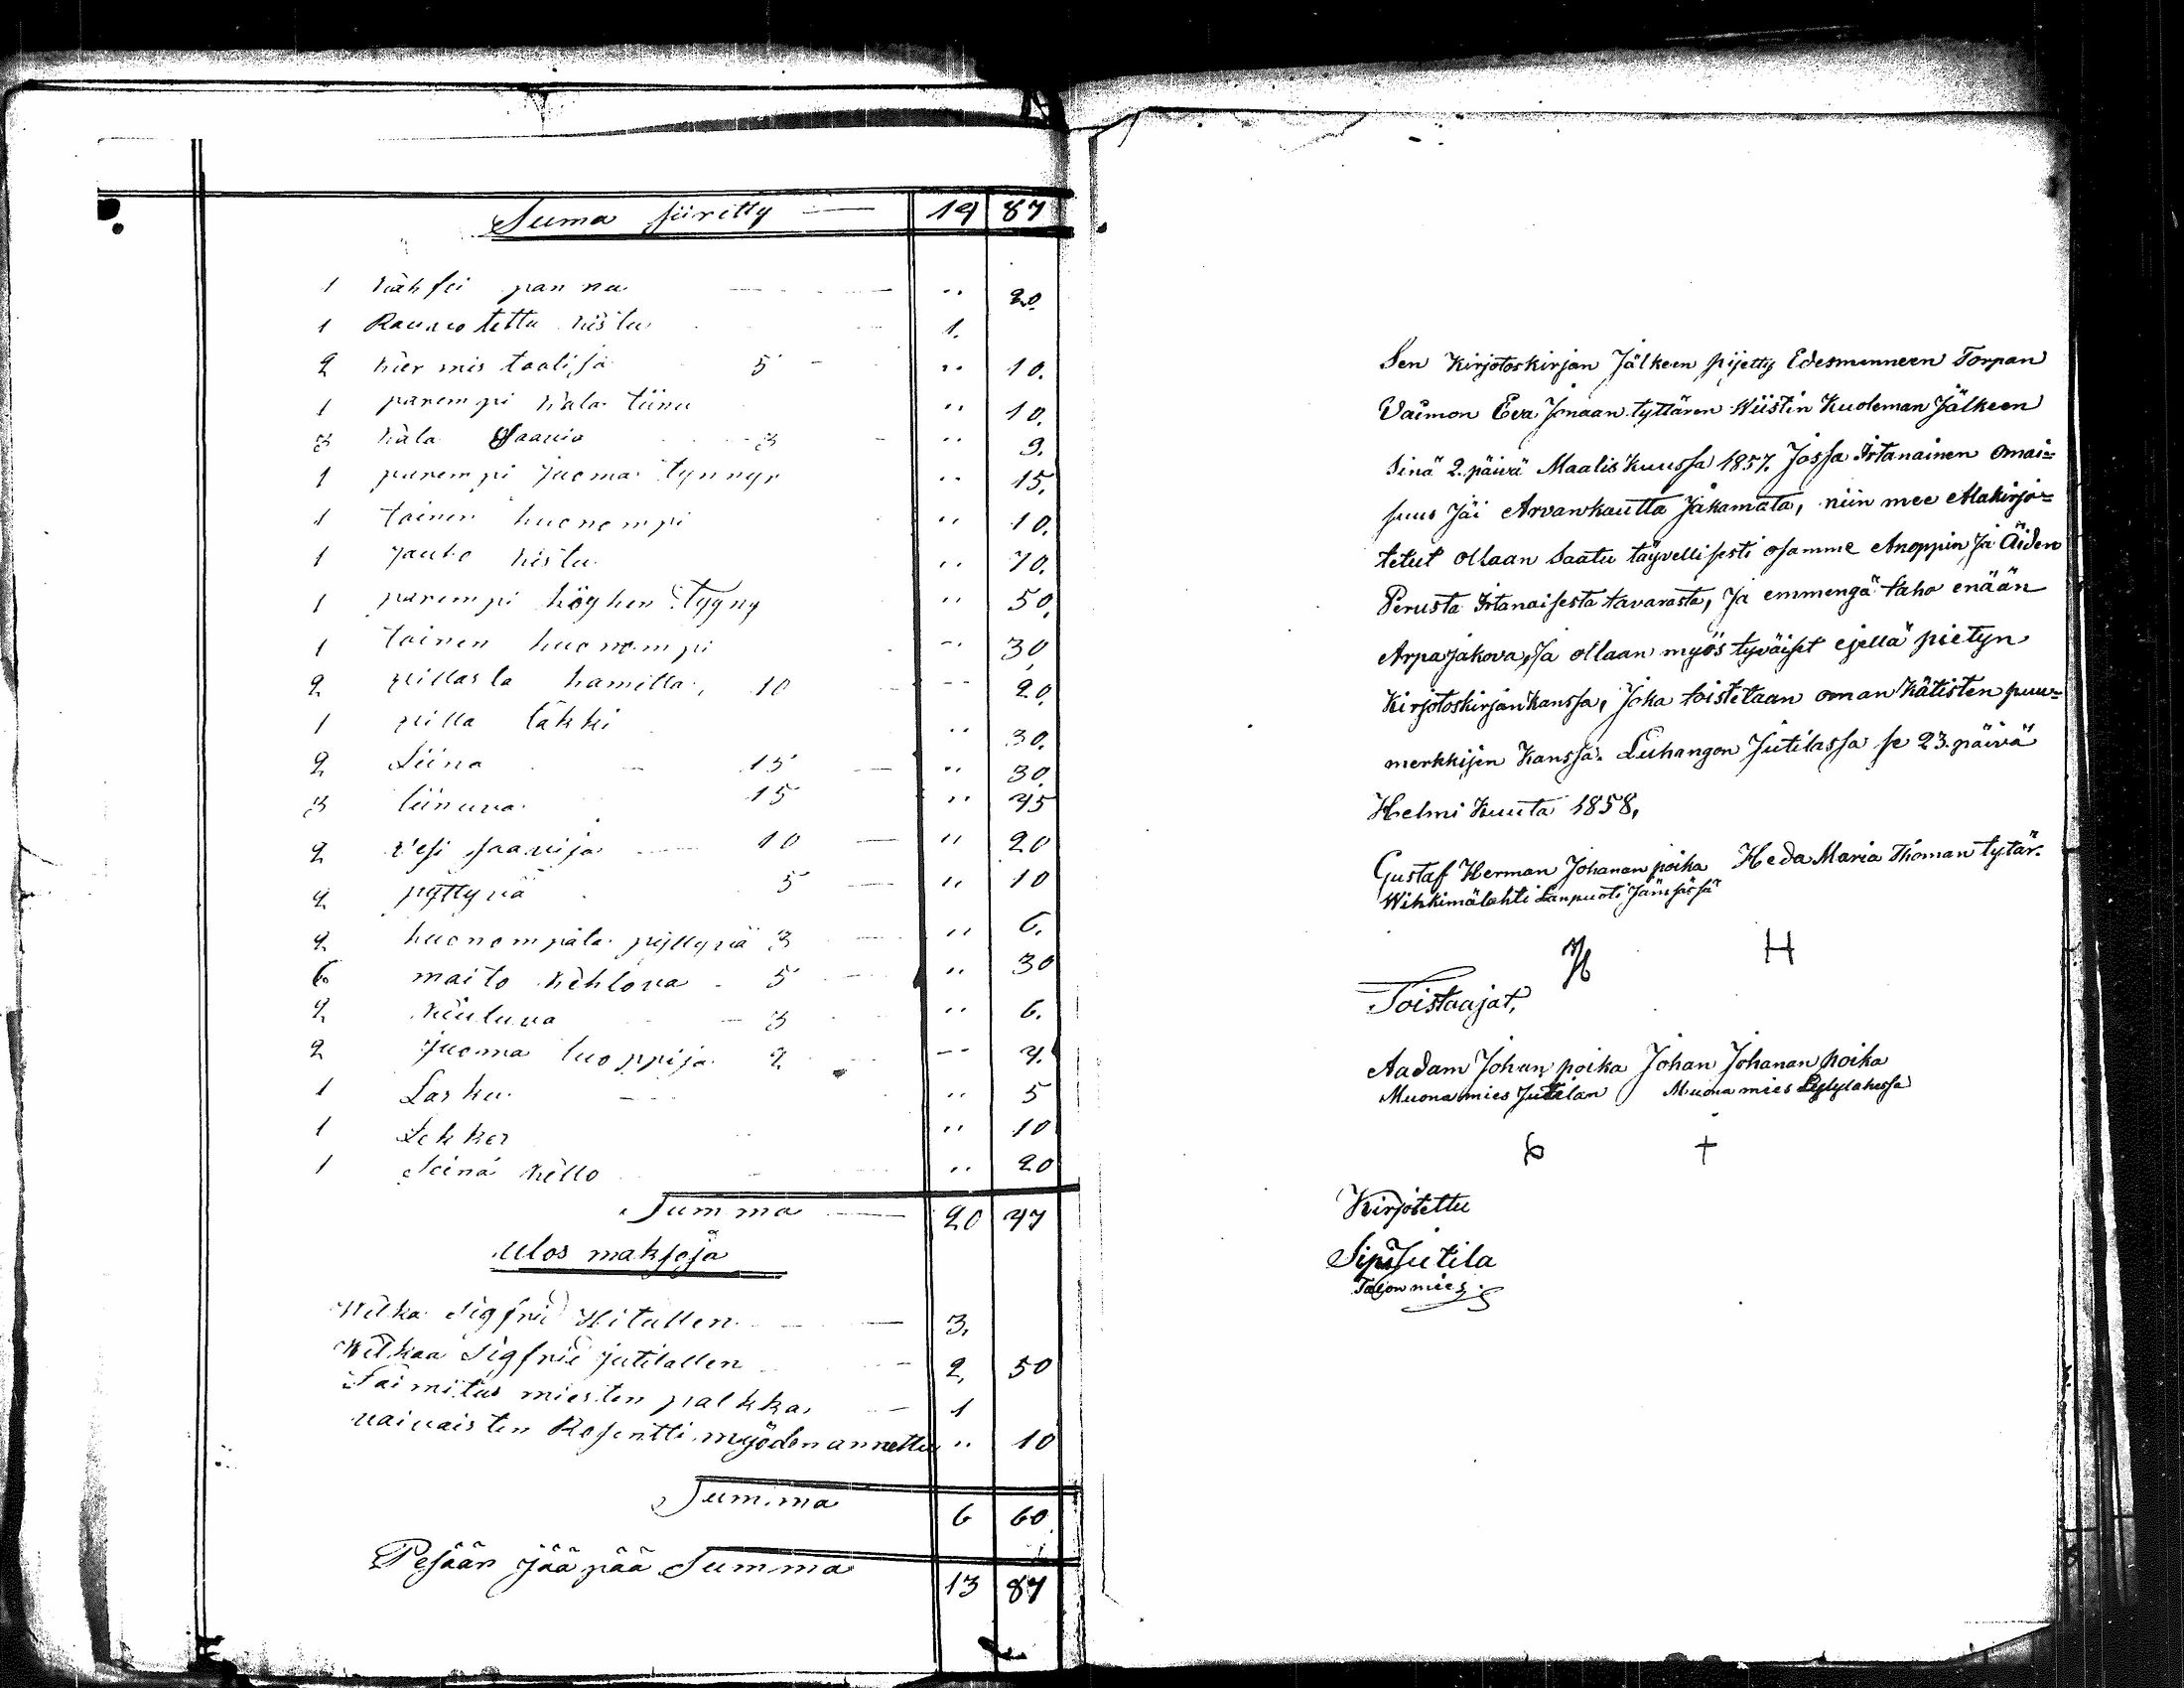 Suma siiretty — 19 87
1 kahfei panna — " 20.
1 Rauwotettu kistu 1.
2 5 - " 10.
1 parempi kala tiinu " 10.
3 kala Saavia 3 - " 9.
1 parempi juoma tynnyr " 15.
1 toinen huonompi " 10.
1 jauho kistu " 70.
1 parempi höyhen Tyyny " 50.
1 toinen huonompi " 30.
2 villasta hamitta, 10 " 20.
1 villa täkki " 30.
2 Liina 15 — " 30.
3 liinuva 15 " 45
2 vesi saavija — 10 — " 20
2 pyttyviä 5 — " 10
2 huonompata pyttyviä 3 — " 6.
6 maito kehlova 5 — " 30
2 kiuluva — 3 " 6.
2 Juoma tuoppija 2. -- 4.
1 Lasku — " 5
1 Lekker " 10
1 Seinä kello " 20
Summa — 20 47
Ulos maksoja
Welka Sigfrid Hitallen — 3.
Welkaa Sigfrid Jutilallen — 2. 50
Toimitus miesten palkka, — 1
vaivaisten Rosentti myöden annettu " 10
Summa 6 60
Pesään jääpää Summa 13 87
Sen Kirjotoskirjan Jälkeen pijetty Edesmenneen Torpan
Vaimon Eva Jonaan tyttären Wiistin Kuoleman Jälkeen
Sinä 2. päivä Maalis kuussa 1857. Jossa Irtanainen omai=
suus Jäi Arvankautta Jakamata, niin mee Alakirjo=
tetut ollaan Saatu täyvellisesti osamme Anoppin Ja Äiden
Perusta Irtanaisesta tavarasta, Ja emmengä taho enään
Arpajakova, Ja ollaan myös tyväiset ejellä pietyn
Kirjotoskirjan Kanssa, Joka toistetaan oman Kätisten puu=
merkkijen Kanssa. Luhangon Jutilassa se 23. päivä
Helmi Kuuta 1858,
Gustaf Herman Johanan poika Heda Maria Thoman tytär.
Wihkimälahti Lanpuoti Jämsässä
H H
Toistaajat,
Aadam Johan poika Johan Johanan poika
Muona mies Jutilan Muona mies Lylylahessa
+
Kirjotettu
Sipi Jutila
Talonmies